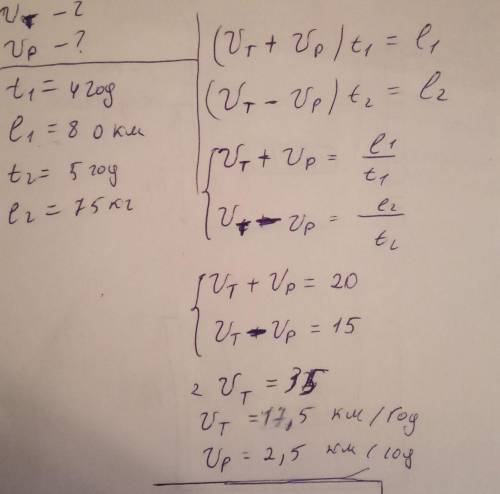 υт - ?
υр - ?
t1 = 4 год
l1 = 80 км
t2 = 5 год
l2 = 75 кг
(υт + υр) t1 = l1
(υт - υр) t2 = l2
υт + υр = l1/t1
υт - υр = l2/t2
υт + υр = 20
υт - υр = 15
2 υт = 35
υт = 17,5 км/год
υр = 2,5 км/год